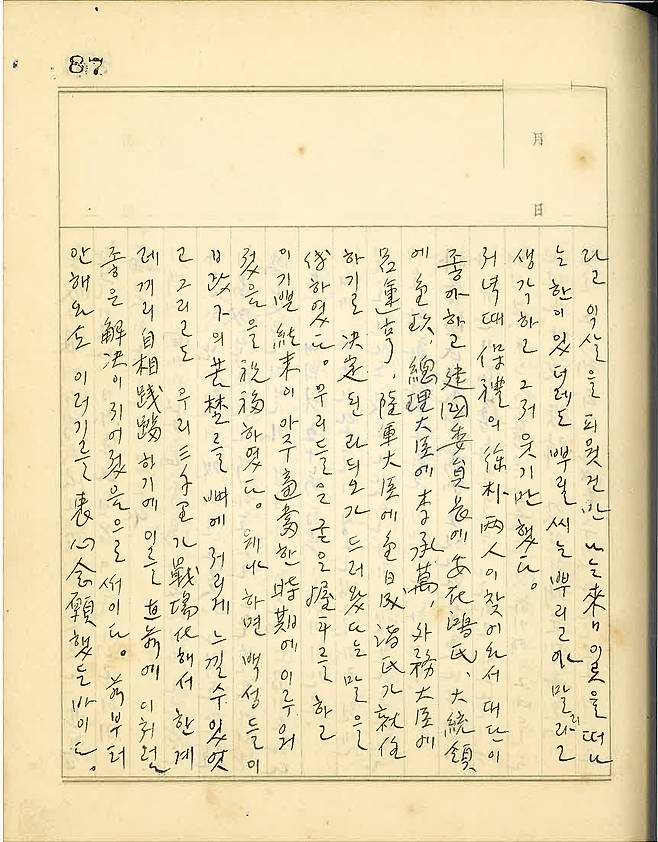 87
月
日
라고 익살을 피웟건만 나는 來日 이곳을 떠나
는 한이 있더래도 뿌릴 씨는 뿌리고야 말리라고
생각하고 그저 웃기만 했다.
저녁때 保禮의 徐朴 两人이 찾어와서 대단이
좋아하고 建国委員長에 安在鴻氏、大統領
에 金玖、總理大臣에 李承萬、外務大臣에
呂運亨、陸軍大臣에 金日成 諸氏가 就任
하기로 決定된 라듸오가 드러왔다는 말을
傳하였다。우리들은 굳은 握手를 하고
이 기쁜 結末이 아주 適當한 時期에 이루워
젔음을 祝福하였다。웨냐하면 백성들이
日政下의 苦楚를 뼈에 저리게 느낄 수 있엇
고 그리고도 우리 三千里가 戰場化해서 한 게
레끼리 自相踐踏하기에 이를 直前에 이처럼
좋은 解決이 지어젔음으로 써이다。前부터
안해와도 이러기를 衷心念願했든 바이다。